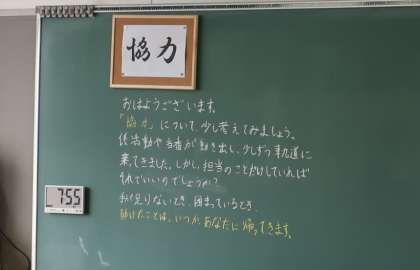 協力
おはようございます。
「協力」について、少し考えてみましょう。
係活動や当番が動き出し、少しずつ軌道に
乗ってきました。しかし、担当のことだけしていれば
それでいいのでしょうか?
私が足りないとき、困っているとき、
助けたことは、いつか、あなたに帰ってきます。
755